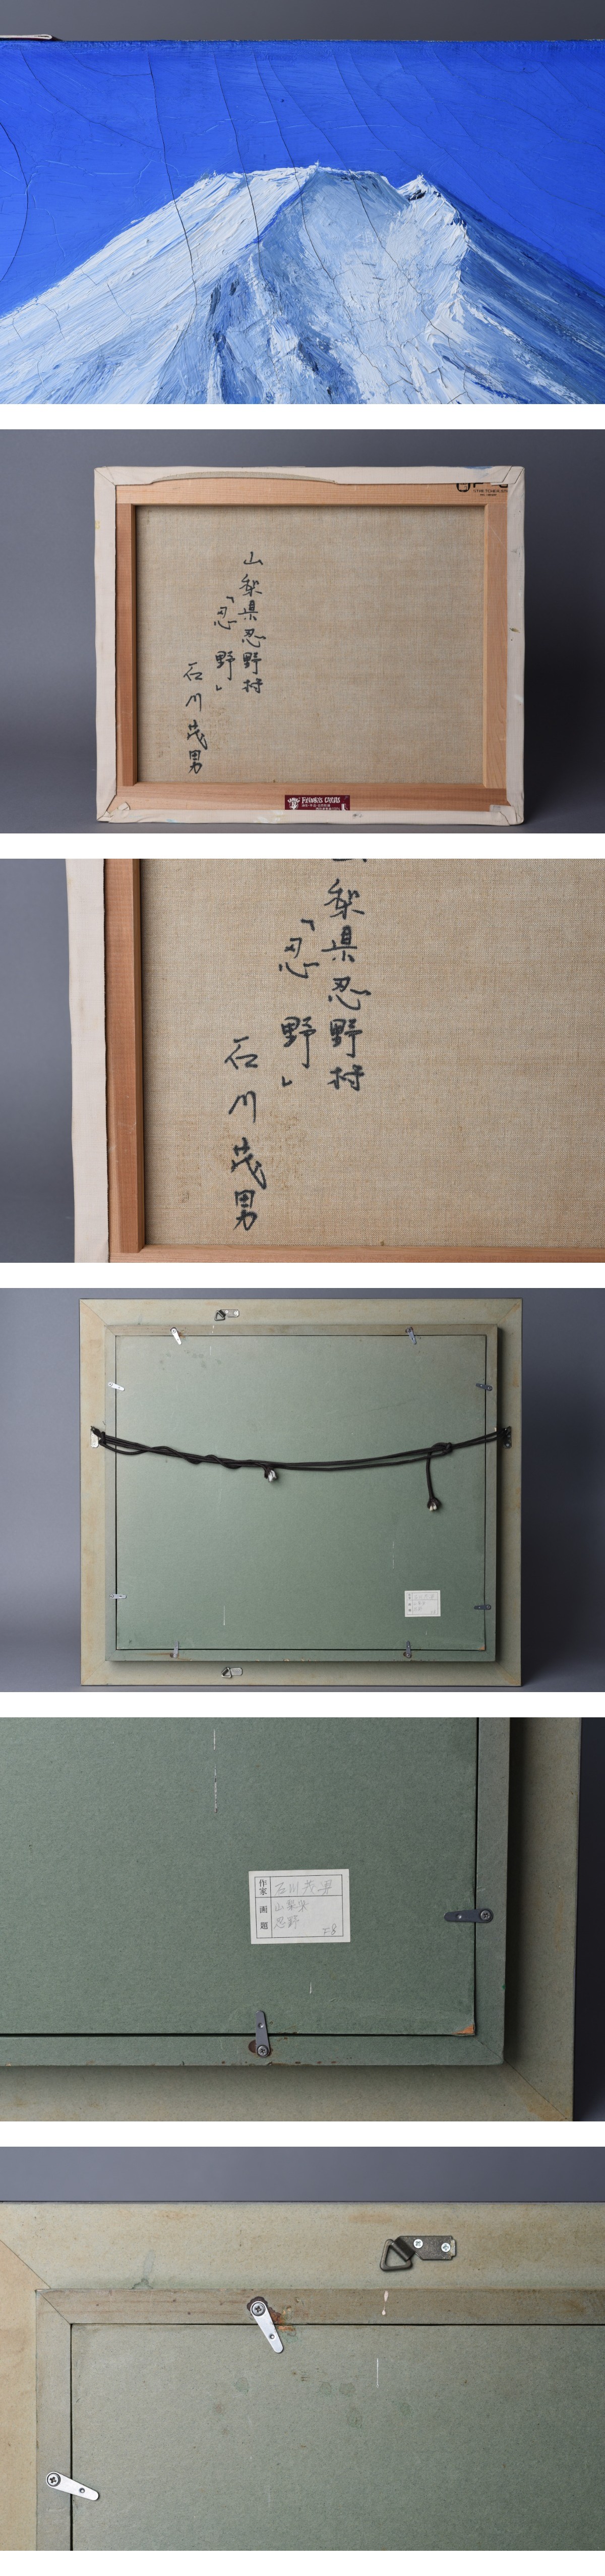 山梨県忍野村
「忍野」
石川茂男
梨県忍野村
「忍野」
石川茂男
作家
石川茂男
画題
山梨県
忍野